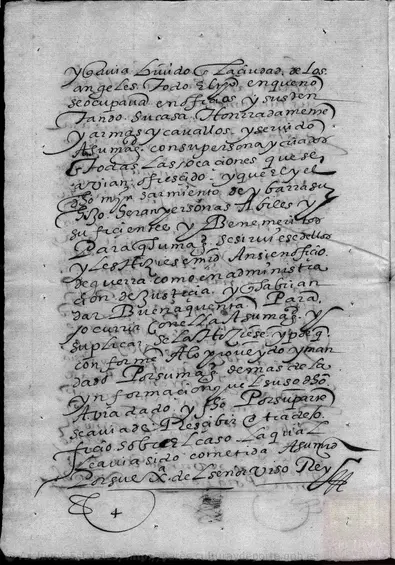 y avia bivido en la ciudad de los
angeles todo el tpo en que no
se ocupava en oficios y susten
tando su casa honrradamente
y armas y cavallos y servido
A su magd con su persona y criados
en todas las ocaciones que se
avian ofrescido y que el y el
dho min sarmiento de ybarra su
hijo heran personas abiles y
suficientes y benemeritos
Para que su magd se sirviese dellos
y les hiziese md Ansi en oficio
de guerra como en administra
cion de Justicia y que habian
dar Buena quenta Para
ocurria con ella A su magd y
suplicar se la hiziese y por q
con forme A lo proveydo y man
dado Por su magd demas de la
ynformacion que el suso dho
Avia dado y hecho Por su parte
se avia de Rescibir otra de o
ficio sobre el caso La qual
le avia sido cometida A su md
del señor viso Rey